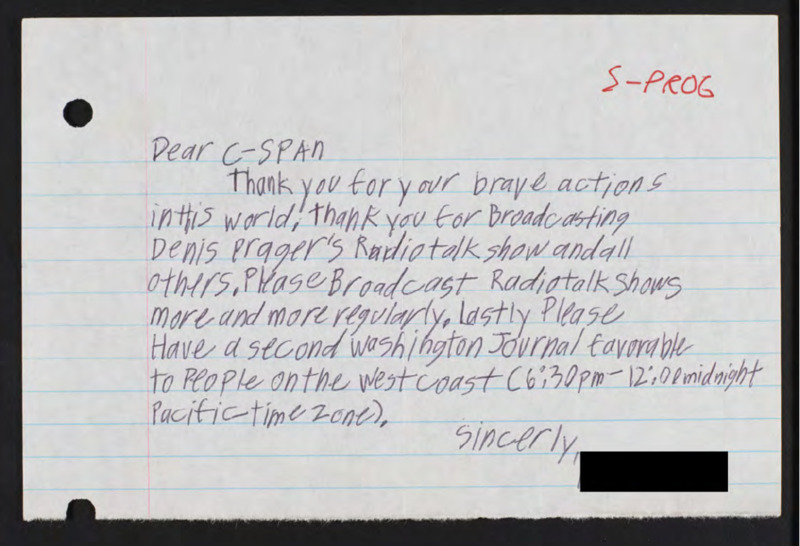 S-PROG
Dear C-SPAN
Thank you for your brave actions
in this world! Thank you for Broadcasting
Denis Prager's Radio talk show and all
others. Please Broadcast Radio talk shows
more and more regularly. Lastly Please
Have a second Washington Journal favorable
to People on the west coast (6:30pm-12:00midnight
Pacific time zone).
Sincerly,